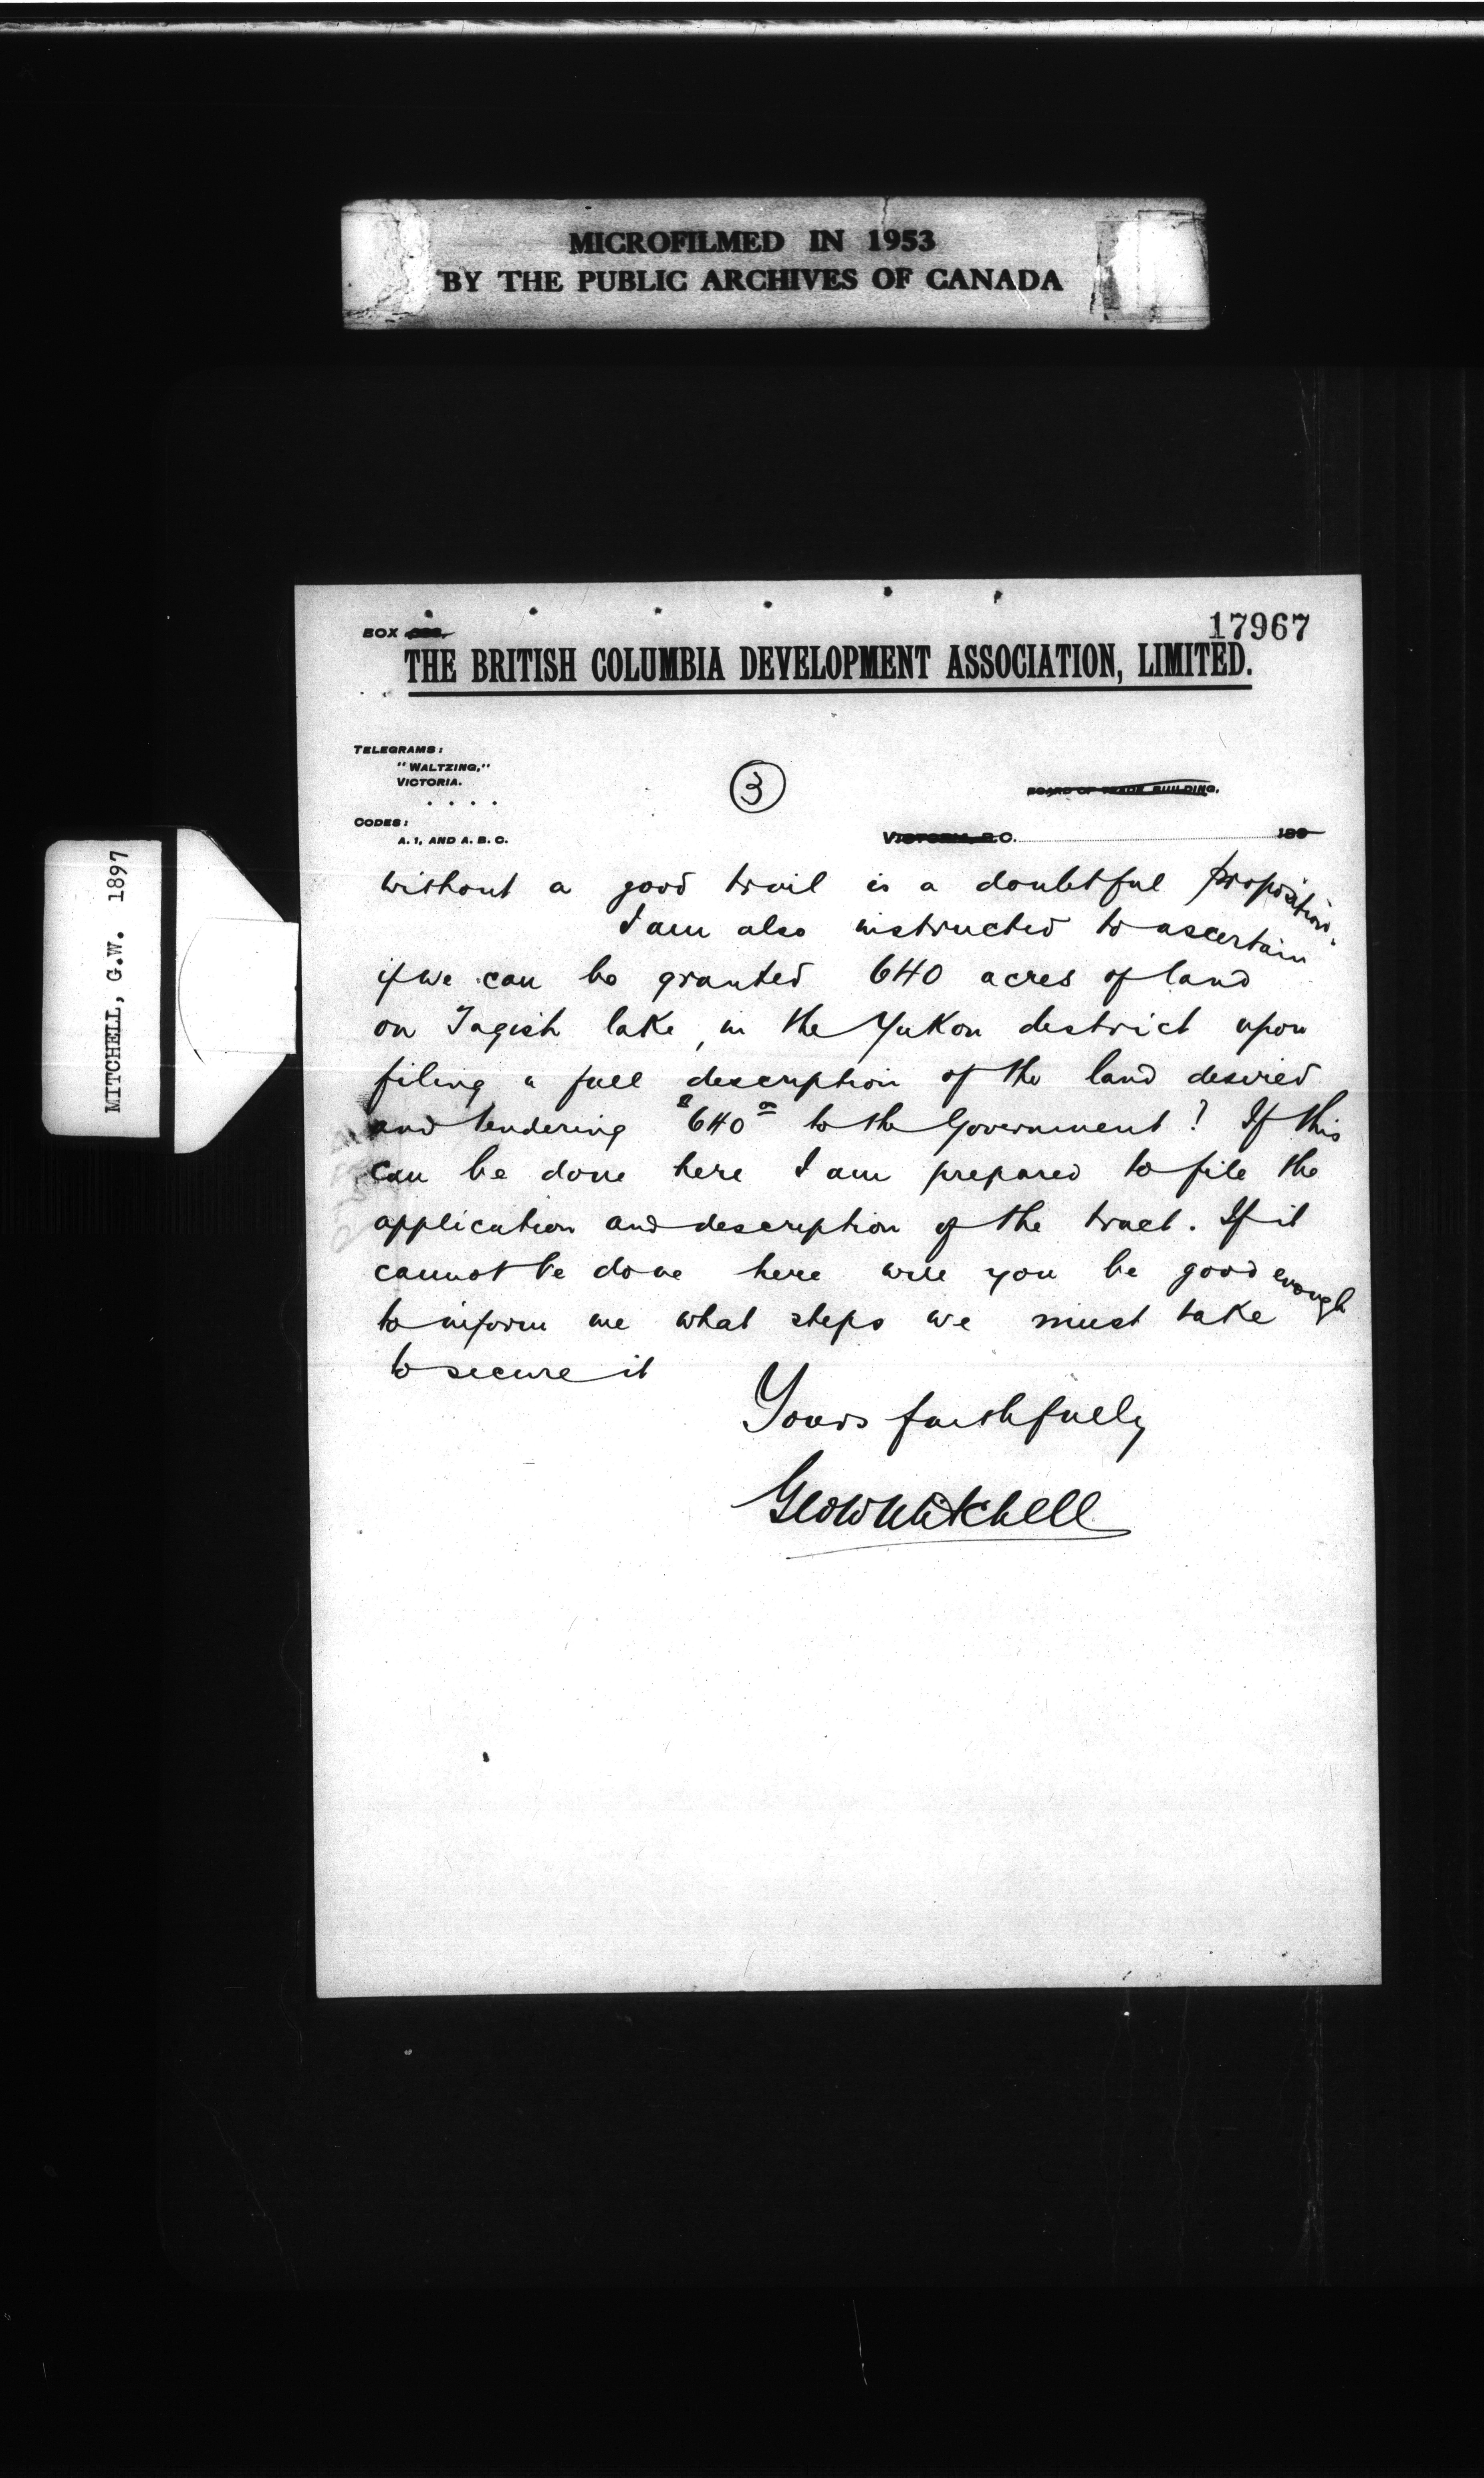 MICROFILMED IN 1953
BY THE PUBLIC ARCHIVES OF CANADA
MITCHELL, G.W. 1897
17967
BOX
THE BRITISH COLUMBIA DEVELOPMENT ASSOCIATION, LIMITED.
TELEGRAMS:
"WALTZING,"
VICTORIA.
CODES:
A. 1, AND A. B. C.
3
BOARD OF TRADE BUILDING,
VICTORIA, B.C. 189
without a good trail is a doubtful proposition.
I am also instructed to ascertain
if we can be granted 640 acres of land
on Tagish lake, in the Yukon district upon
filing a full description of the land desired
and tendering $640 00 to the Government? If this
can be done here I am prepared to file the
application and description of the tract. If it
cannot be done here will you be good enough
to inform me what steps we must take
to secure it
Yours faithfully
Geo W Mitchell